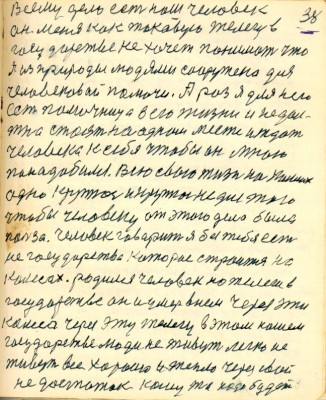 38
Всему дело ест нош человек
он меня как такавую телегу в
государстве не хочет понимат что
я из природы людями сооружена для
человековай помочи. А раз я для него
ест помочница в его жизни и недол-
жна стоят на одном месте и ждат
человека к себя чтобы он мною
понадобился. Всю свою жизн на
одно кручус и кручус не для этого
чтобы человеку от этого дела была
полза. Человек говарит я бы тебя ест
не государства которае строится на
колесах. родился человек на телеги в
государстве он и умер в нем через эти
колеса через эту телегу в этом нашем
государстве люди не живут легко не
живут все хорошо и тепло через свой
недостаток кому та надо будет